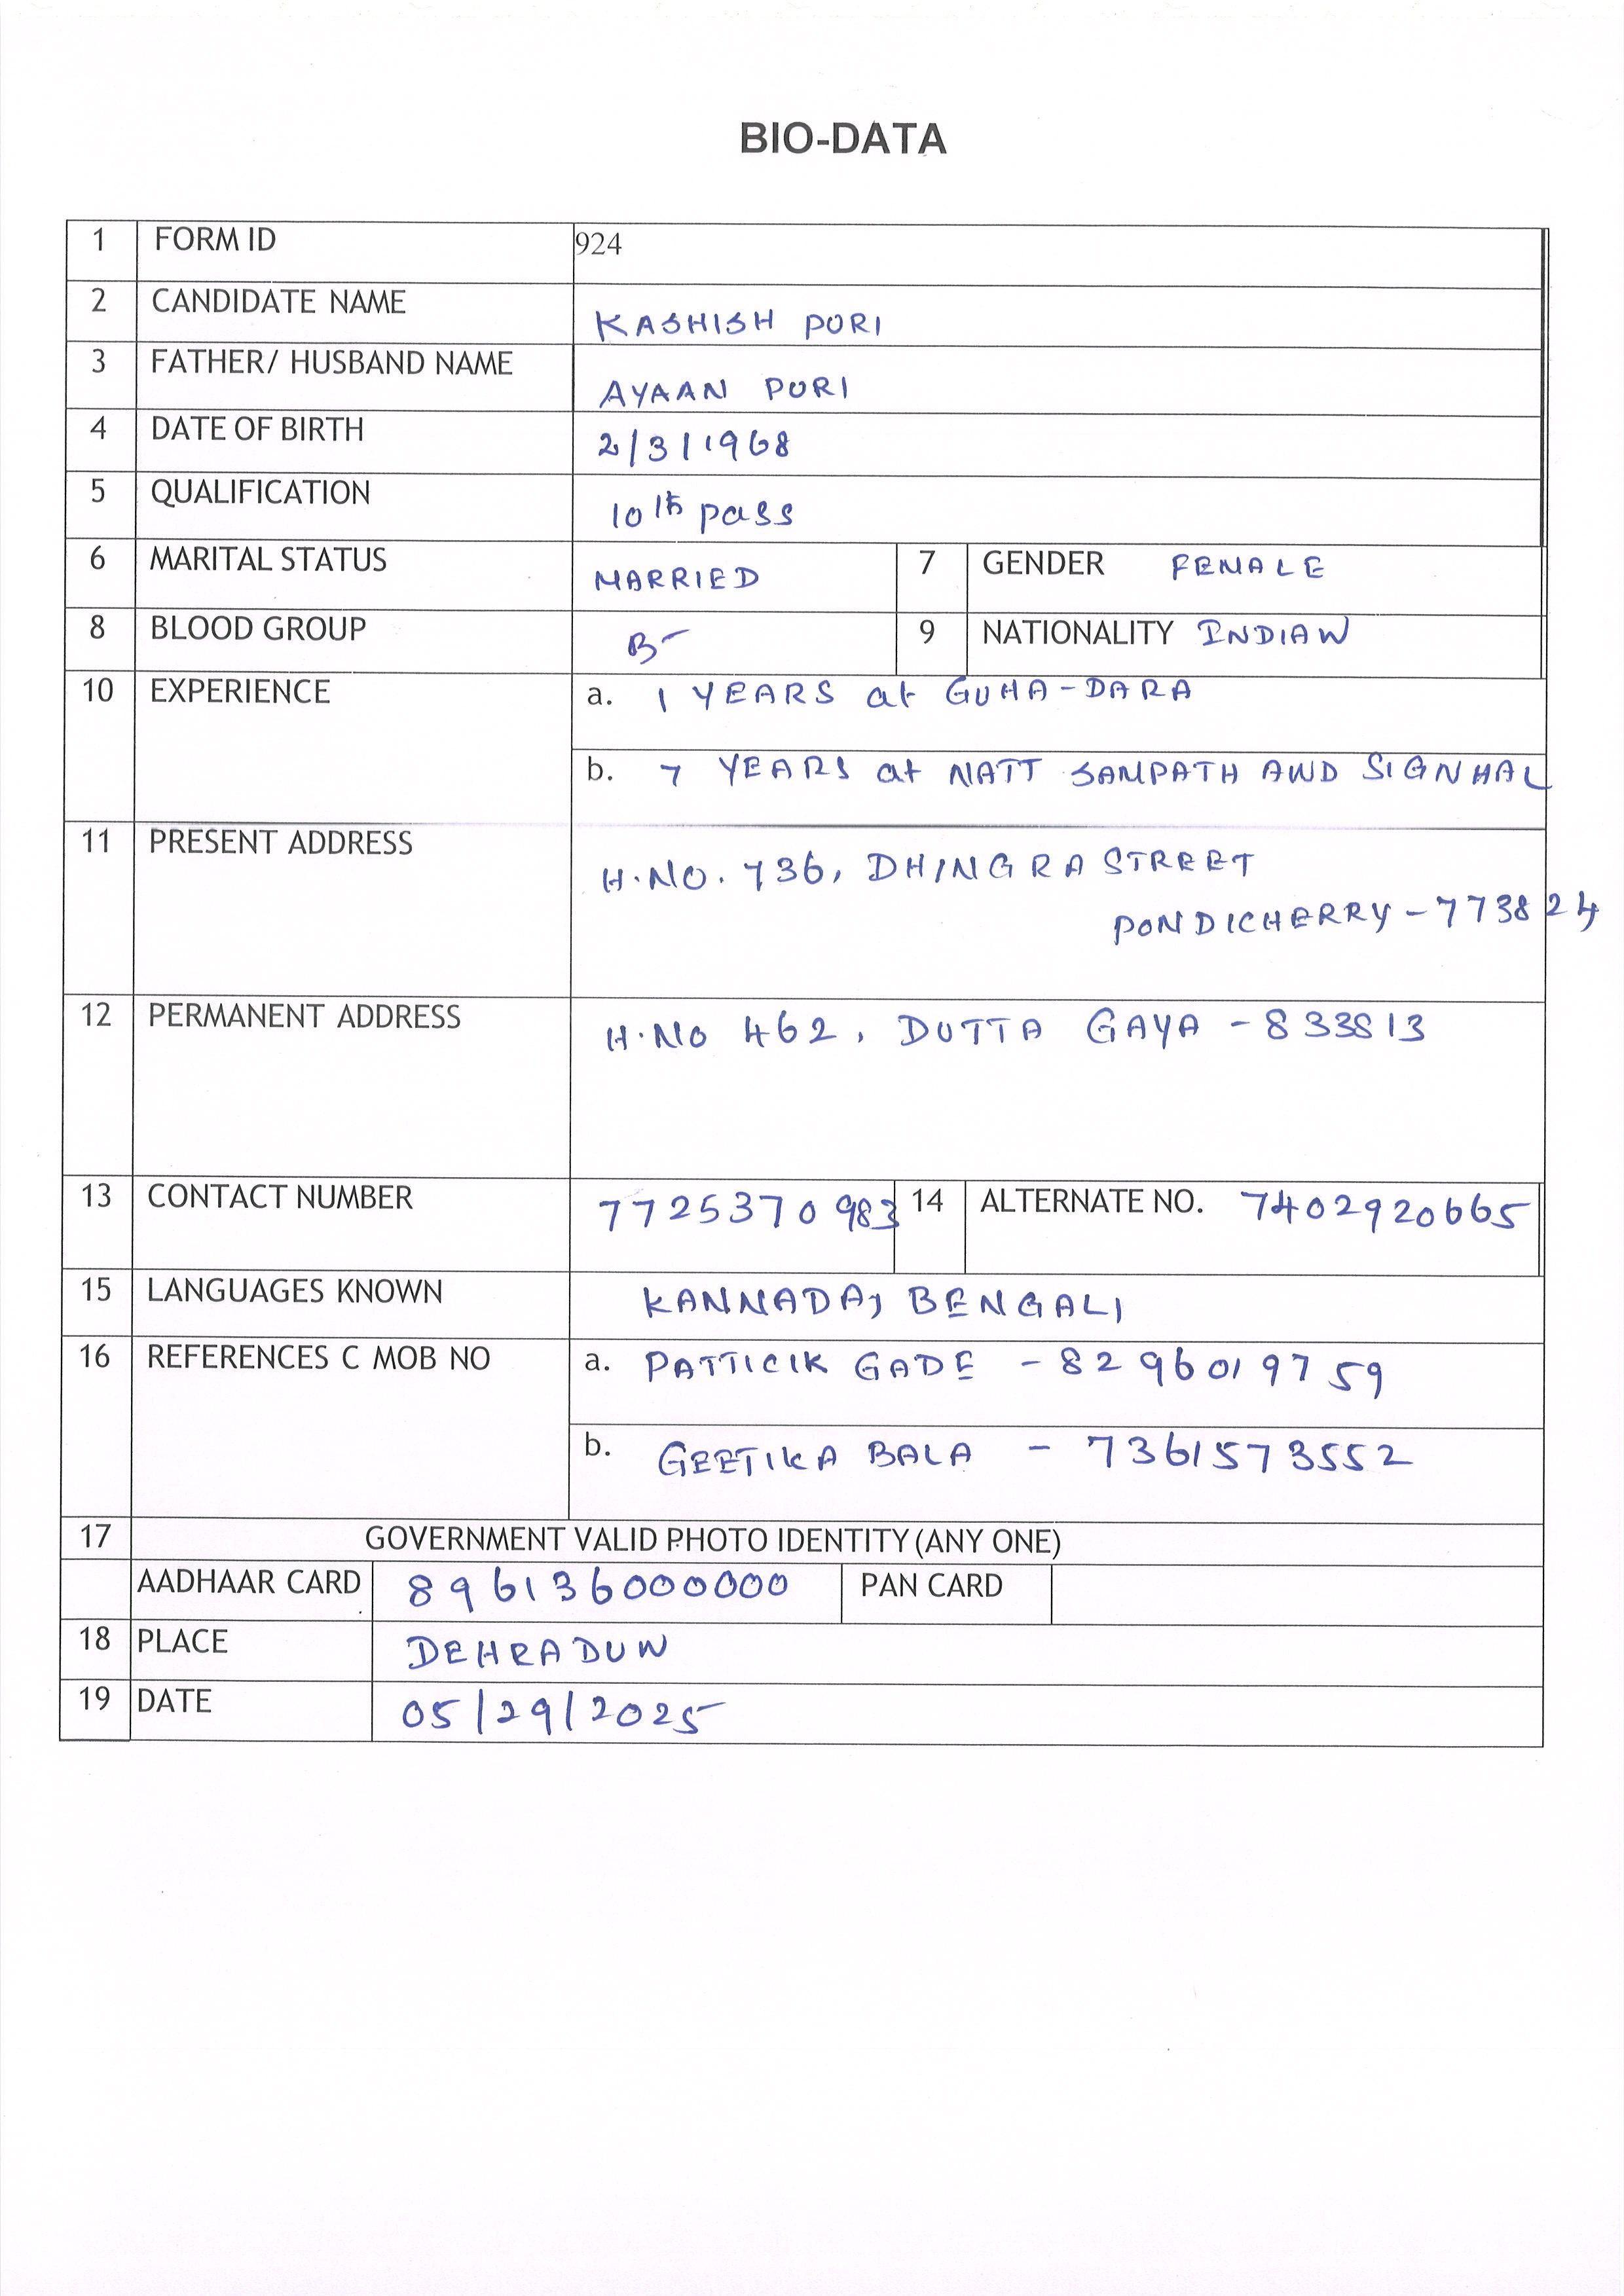 BIO-DATA
1 FORM ID 924
2 CANDIDATE NAME KASHISH PURI
3 FATHER/ HUSBAND NAME AYAAN PURI
4 DATE OF BIRTH 2/3/1968
5 QUALIFICATION 10th pass
6 MARITAL STATUS MARRIED 7 GENDER FEMALE
8 BLOOD GROUP B- 9 NATIONALITY INDIAN
10 EXPERIENCE a. 1 YEARS at GUHA-DARA
b. 7 YEARS at NATT SAMPATH AND SIGNHAL
11 PRESENT ADDRESS H.NO. 736, DHINGRA STREET
PONDICHERRY - 773824
12 PERMANENT ADDRESS H.NO 462, DUTTA GAYA - 833813
13 CONTACT NUMBER 7725370983 14 ALTERNATE NO. 7402920665
15 LANGUAGES KNOWN KANNADA, BENGALI
16 REFERENCES C MOB NO a. PATTICIK GADE - 8296019759
b. GEETIKA BALA - 7361573552
17 GOVERNMENT VALID PHOTO IDENTITY (ANY ONE)
AADHAAR CARD 896136000000 PAN CARD
18 PLACE DEHRADUN
19 DATE 05/29/2025